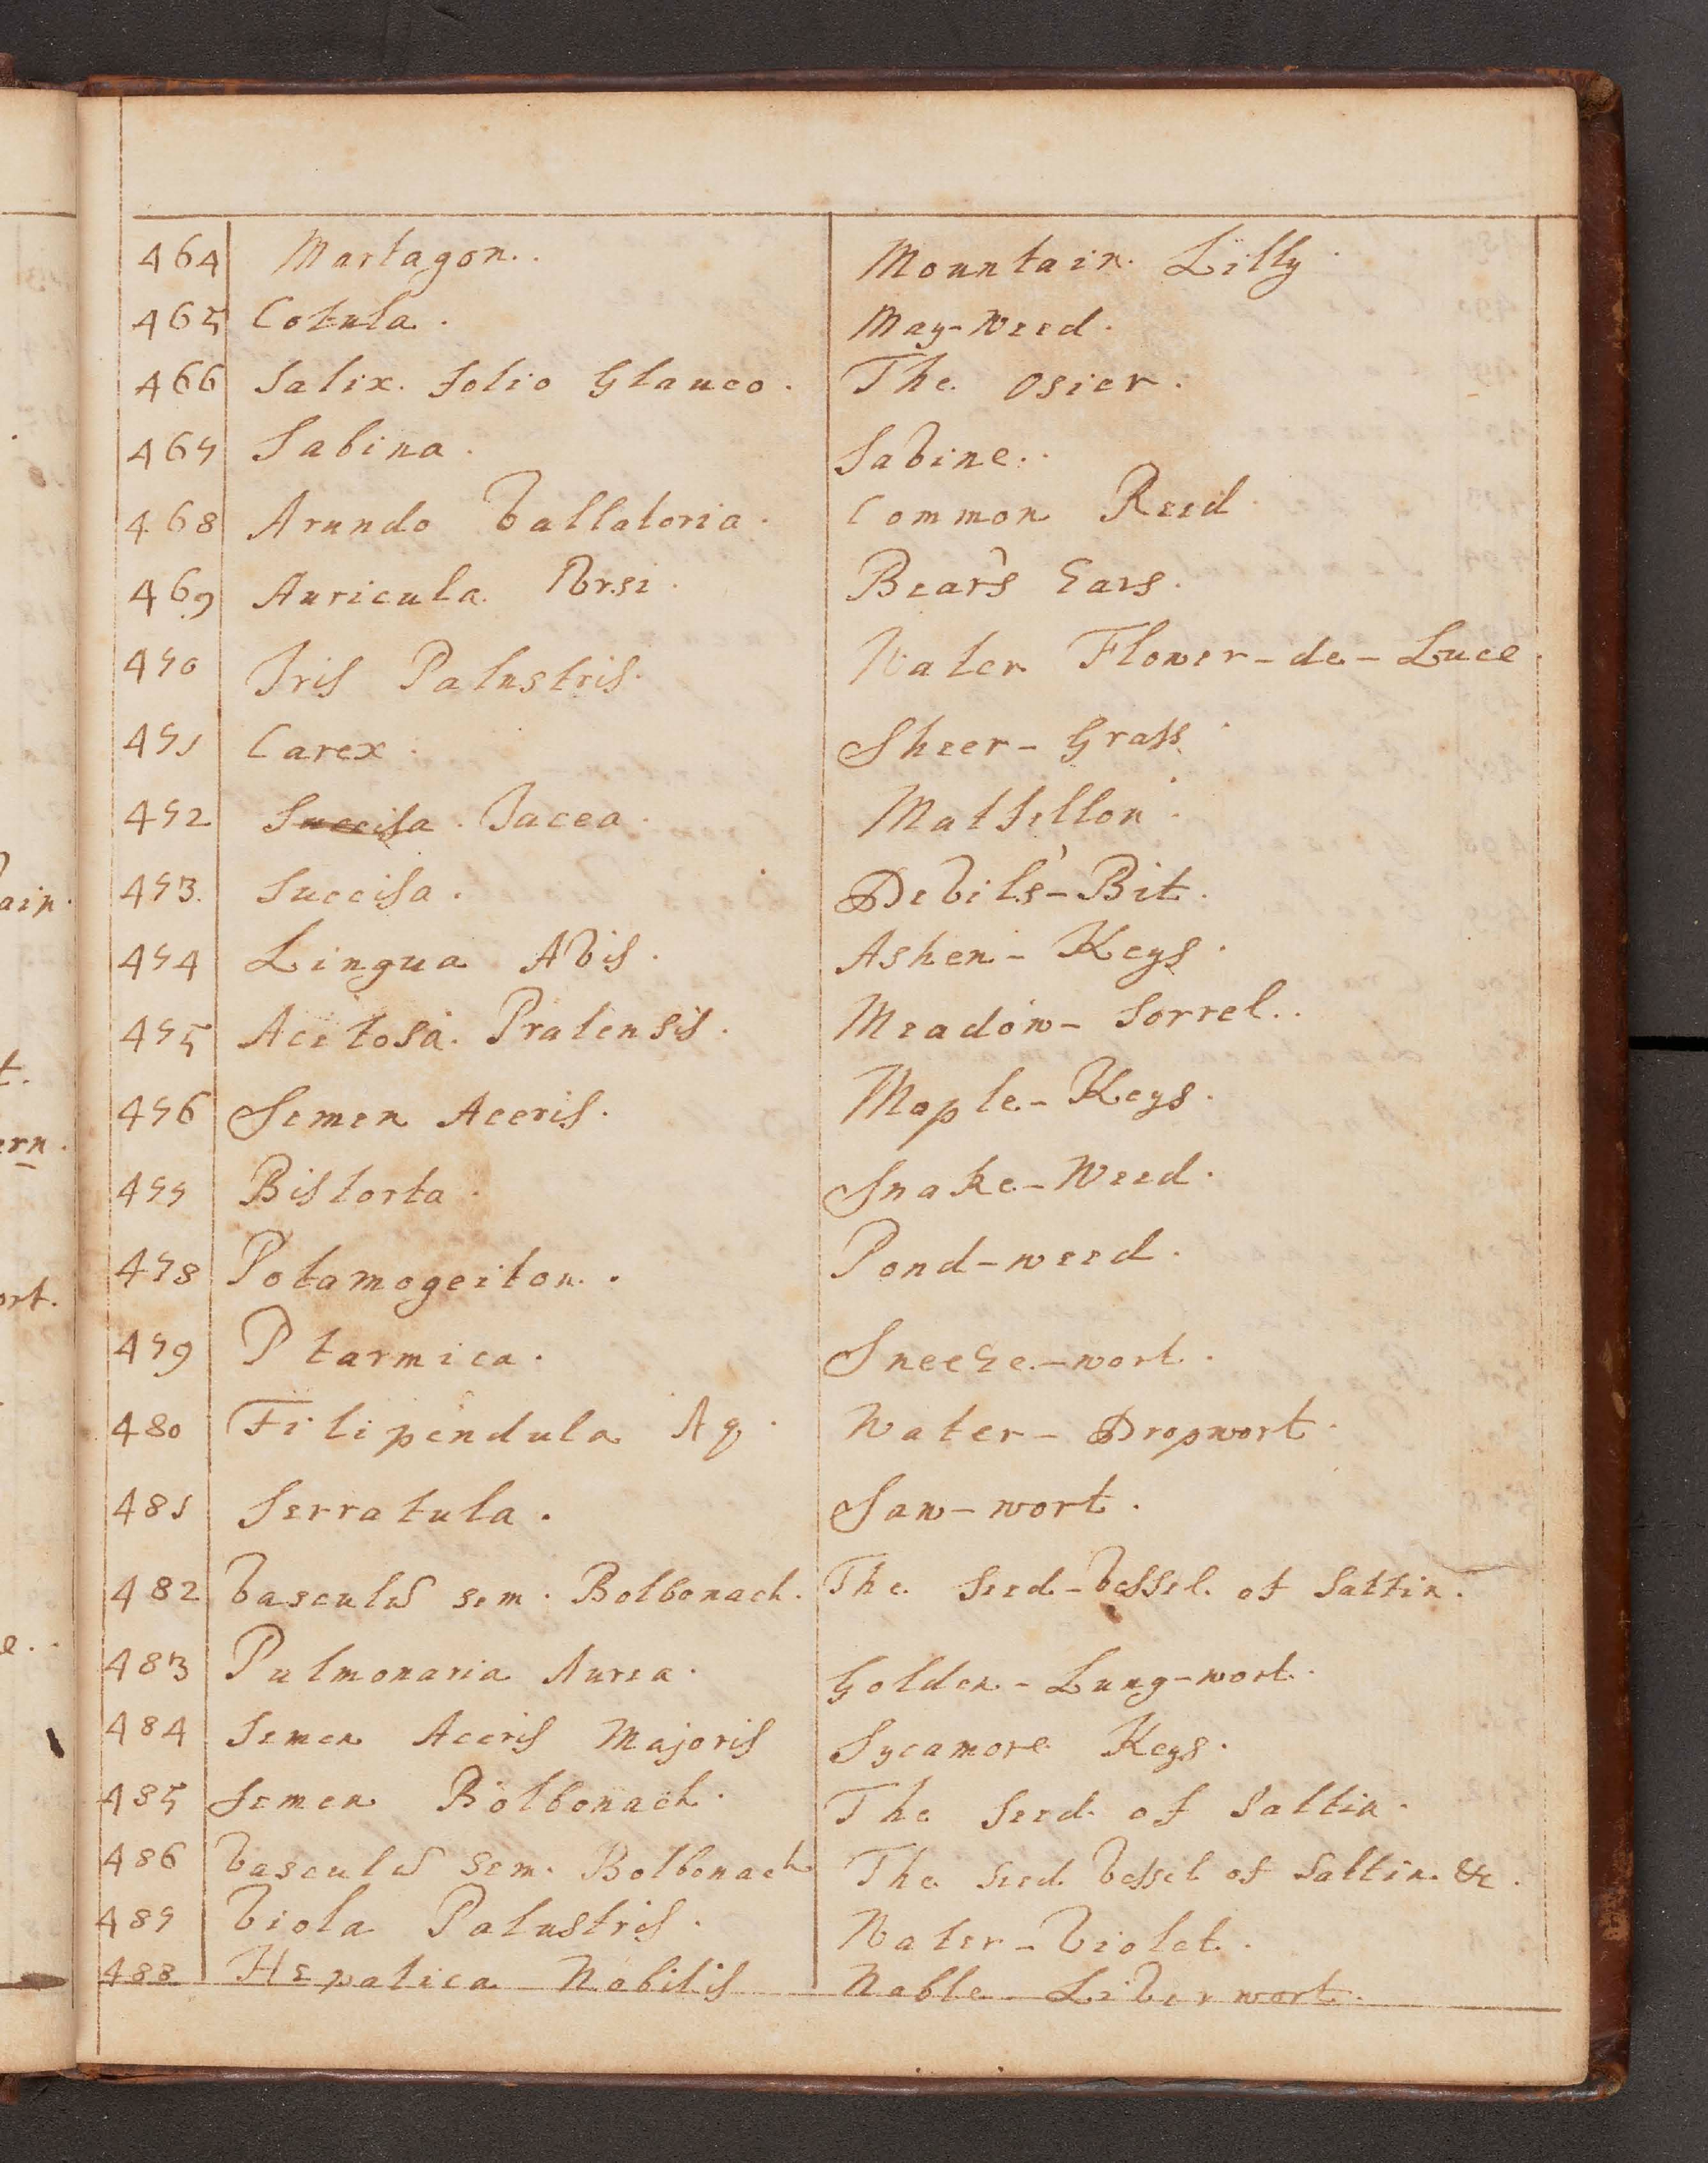 464 Martagon. Mountain Lilly.
465 Cotula. May-Weed.
466 Salix folio Glauco. The Osier.
467 Sabina. Sabine.
468 Arundo Vallatoria. Common Reed.
469 Auricula Vrsi. Bear's Ears.
470 Iris Palustris. Water Flower-de-Luce.
471 Carex. Sheer-Grass.
472 Succisa. Jacea. Matfellon.
473. Succisa. Devil's-Bit.
474 Lingua Avis. Ashen-Keys.
475 Acetosa Pratensis. Meadow-Sorrel.
476 Semen Aceris. Maple-Keys.
477 Bistorta. Snake-Weed.
478 Potamogeiton. Pond-weed.
479 Ptarmica. Sneeze-wort.
480 Filipendula Aq. Water-Dropwort.
481 Serratula. Saw-wort.
482 Vasculū sem. Bolbonach. The Seed-Vessel of Sattin.
483 Pulmonaria Aurea. Golden-Lung-wort.
484 Semen Aceris Majoris Sycamore Keys.
485 Semen Bolbonach. The Seed of Sattin.
486 Vasculū Sem. Bolbonach The Seed Vessel of Sattin &c.
487 Viola Palustris. Water-Violet.
488 Hepatica Nobilis Noble Liverwort.
ain.
t.
ern.
ort.
e.